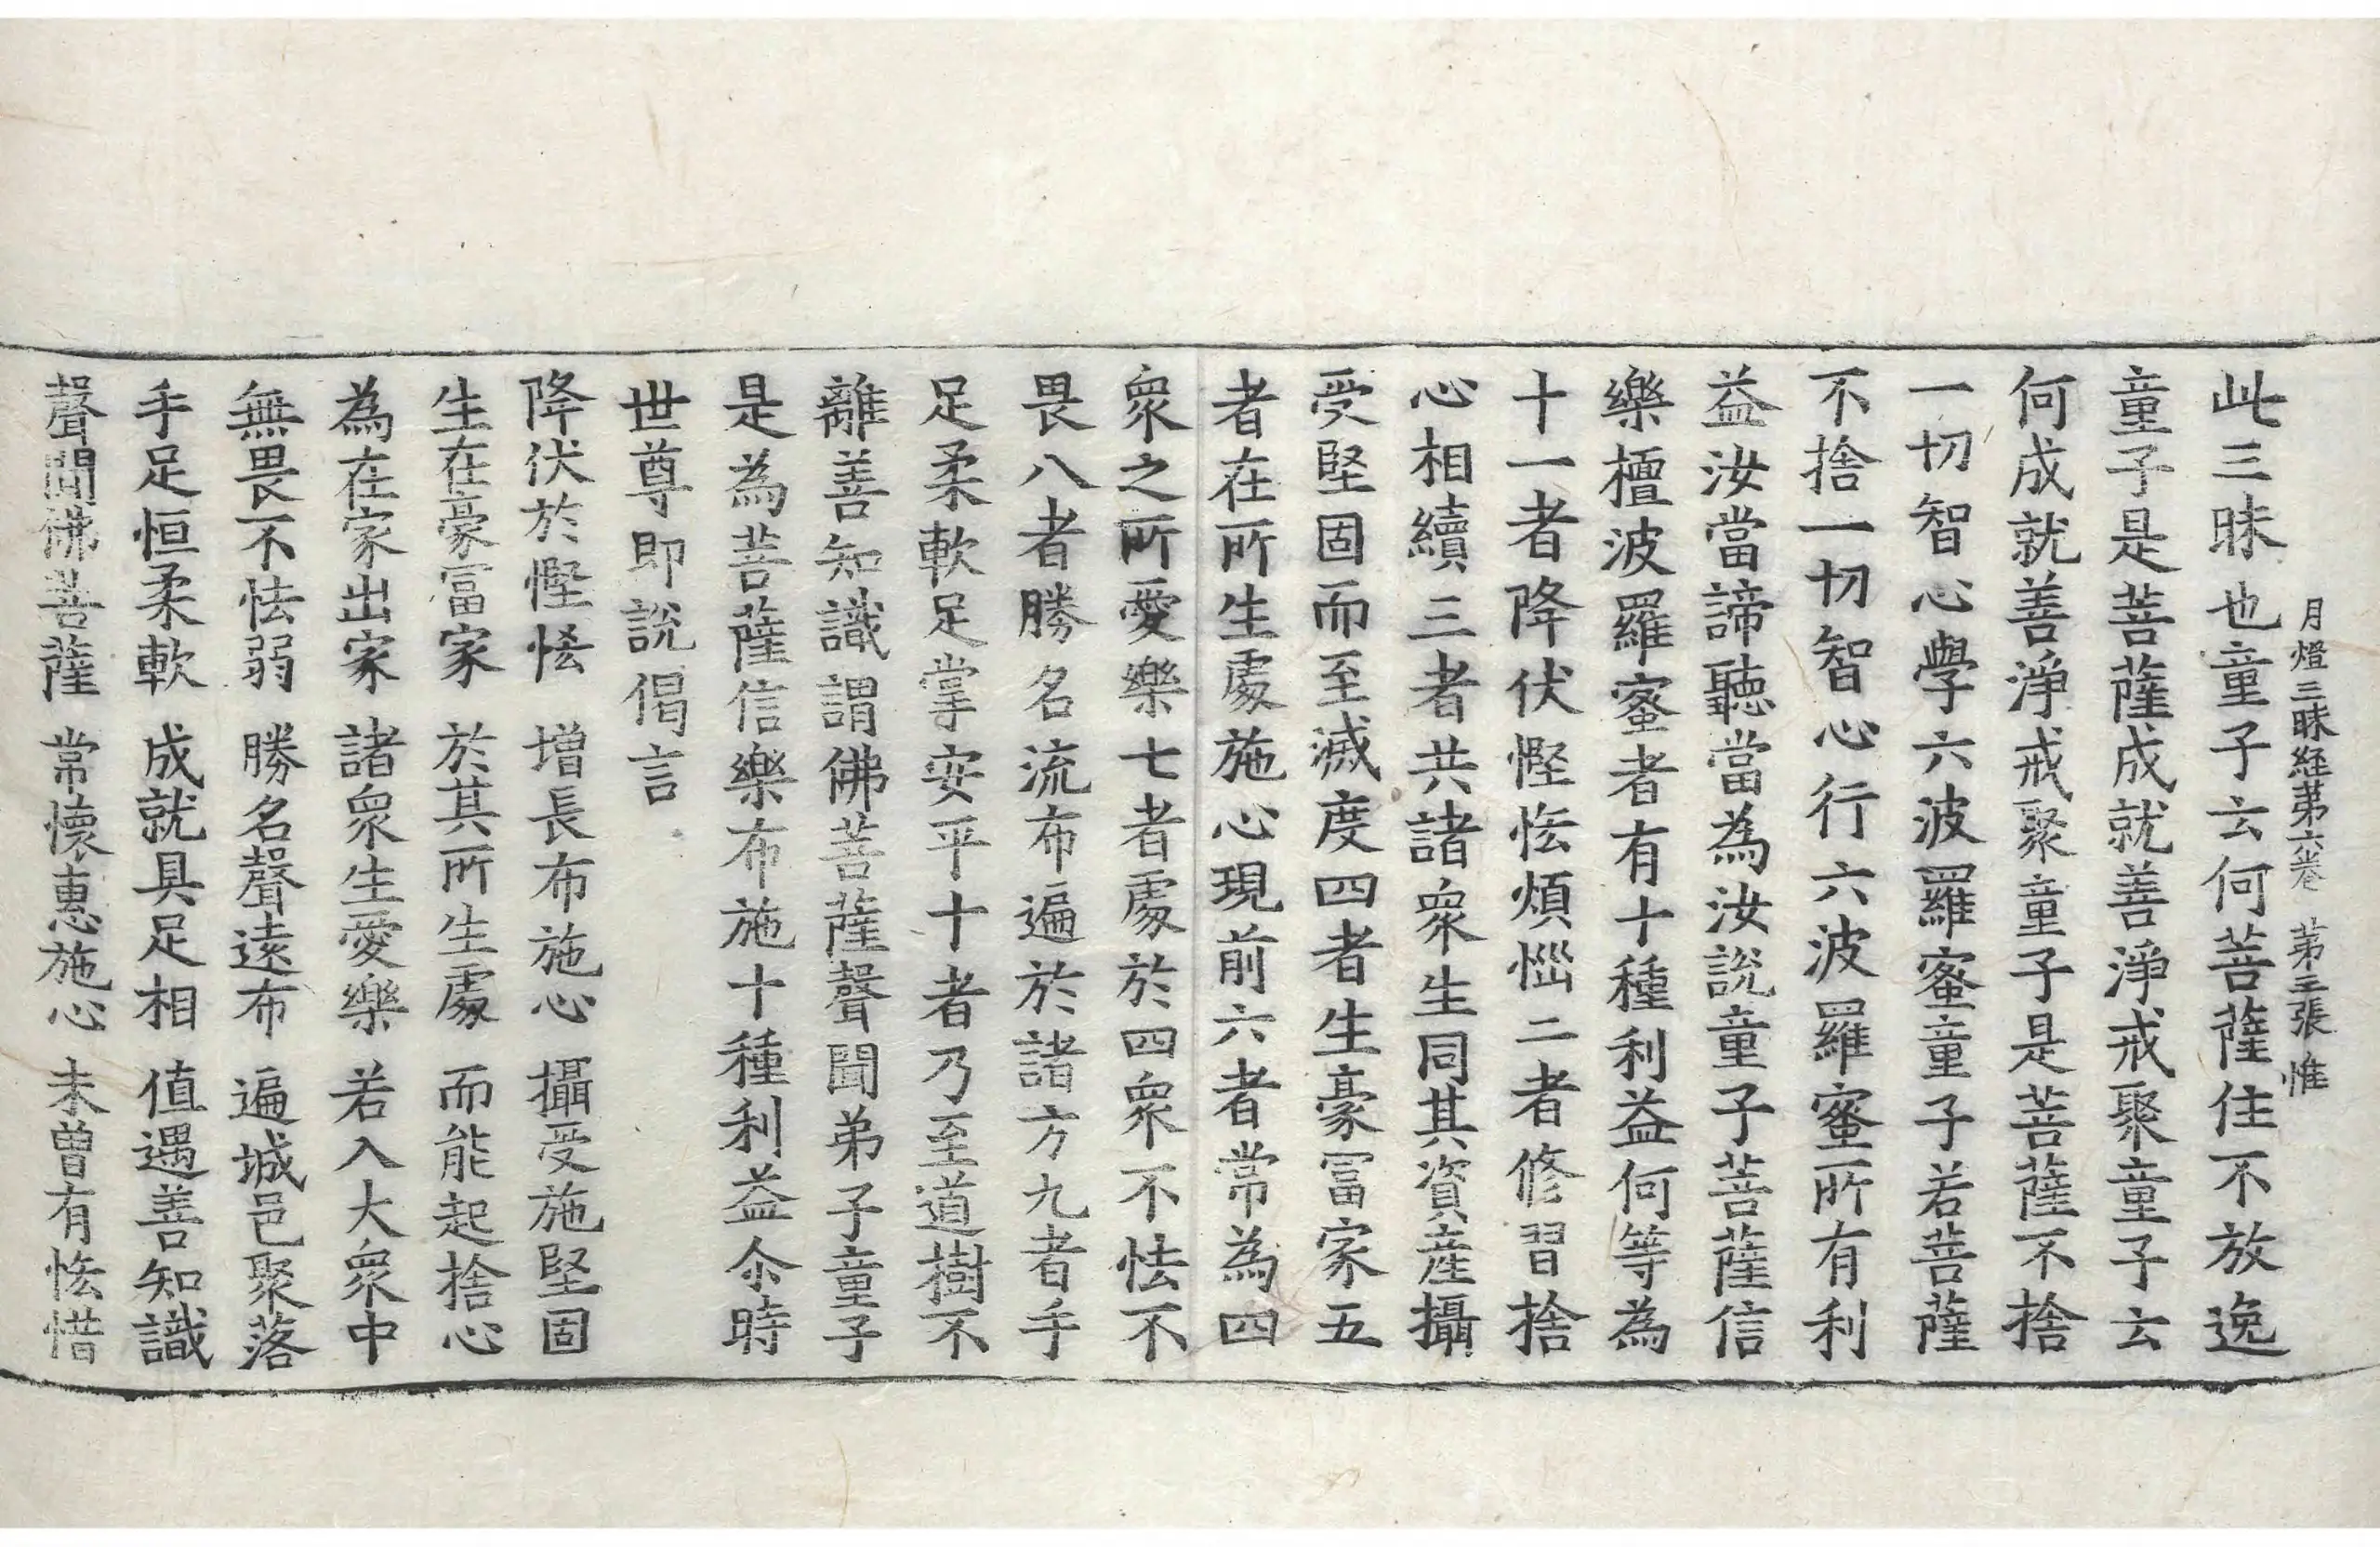 月燈三昧経苐六卷 苐三張 惟
此三昧也童子云何菩薩住不放逸
童子是菩薩成就善淨戒聚童子云
何成就善淨戒聚童子是菩薩不捨
一切智心學六波羅蜜童子若菩薩
不捨一切智心行六波羅蜜所有利
益汝當諦聽當為汝説童子菩薩信
樂檀波羅蜜者有十種利益何等為
十一者降伏慳悋煩惱二者修習捨
心相續三者共諸衆生同其資産攝
受堅固而至滅度四者生豪冨家五
者在所生處施心現前六者常為四
衆之所愛樂七者處於四衆不怯不
畏八者勝名流布遍於諸方九者手
足柔軟足掌安平十者乃至道樹不
離善知識謂佛菩薩聲聞弟子童子
是為菩薩信樂布施十種利益尒時
世尊即説偈言
降伏於慳悋 增長布施心 攝受施堅固
生在豪冨家 於其所生處 而能起捨心
為在家出家 諸衆生愛樂 若入大衆中
無畏不怯弱 勝名聲遠布 遍城邑聚落
手足恒柔軟 成就具足相 值遇善知識
聲聞佛菩薩 常懷惠施心 未曽有悋惜